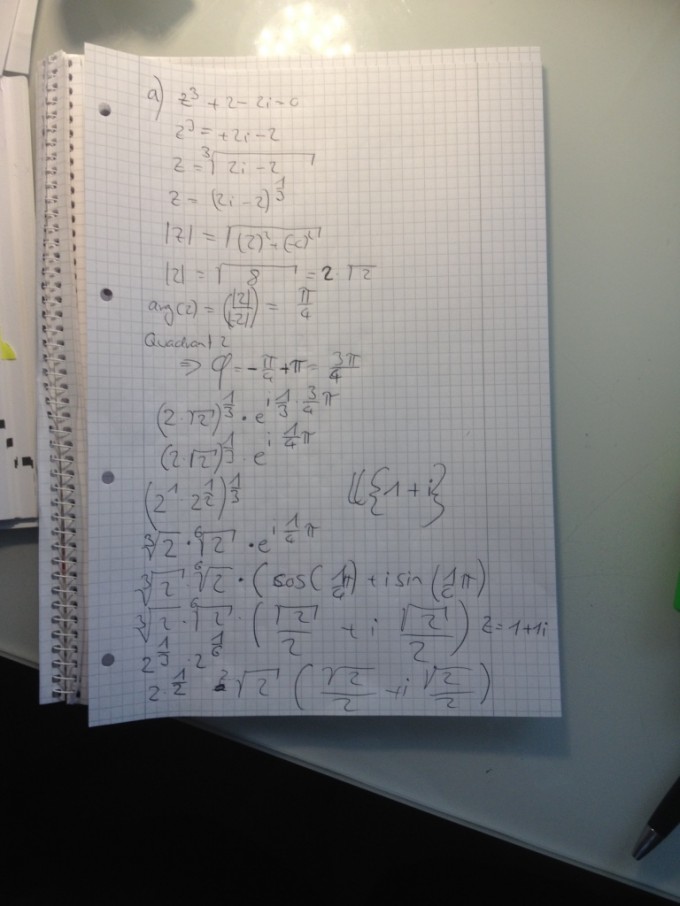 a) z³ + 2 - 2i = 0
z³ = +2i - 2
z = ³√(2i - 2)
z = (2i - 2)^(1/3)
|z| = √((2)² + (-2)²)
|z| = √8 = 2 · √2
arg(z) = (|2|/|-2|) = π/4
Quadrant 2
⇒ φ = -π/4 + π = 3π/4
(2 · √2)^(1/3) · e^(i 1/3 · 3/4 π)
(2 · √2)^(1/3) · e^(i 1/4 π)
(2¹ · 2^(1/2))^(1/3)
L{1 + i}
³√2 · ⁶√2 · e^(i 1/4 π)
³√2 · ⁶√2 · (cos(1/4 π) + i sin(1/4 π)
³√2 · ⁶√2 · (√2/2 + i √2/2) z = 1 + 1i
2^(1/3) · 2^(1/6)
2^(1/2) √2 (√2/2 + i √2/2)